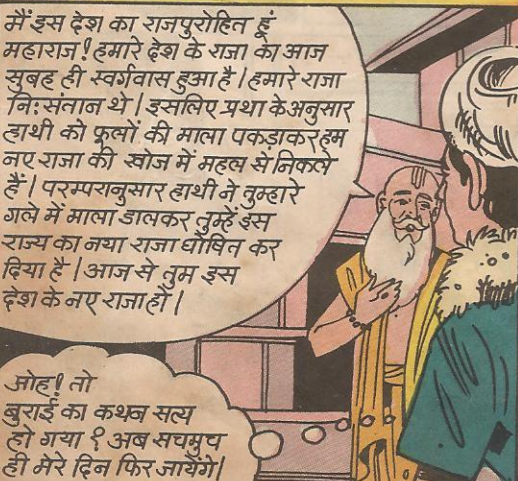 मैं इस देश का राजपुरोहित हूं
महाराज! हमारे देश के राजा का आज
सुबह ही स्वर्गवास हुआ है। हमारे राजा
नि:संतान थे। इसलिए प्रथा के अनुसार
हाथी को फूलों की माला पकड़ाकर हम
नए राजा की खोज में महल से निकले
हैं। परम्परानुसार हाथी ने तुम्हारे
गले में माला डालकर तुम्हें इस
राज्य का नया राजा घोषित कर
दिया है। आज से तुम इस
देश के नए राजा हो।
ओह! तो
बुराई का कथन सत्य
हो गया? अब सचमुच
ही मेरे दिन फिर जायेंगे।